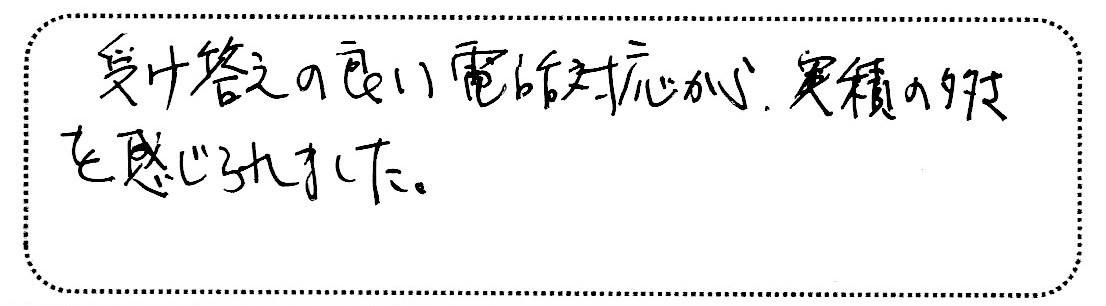 受け答えの良い電話対応から、実積の多さ
を感じられました。